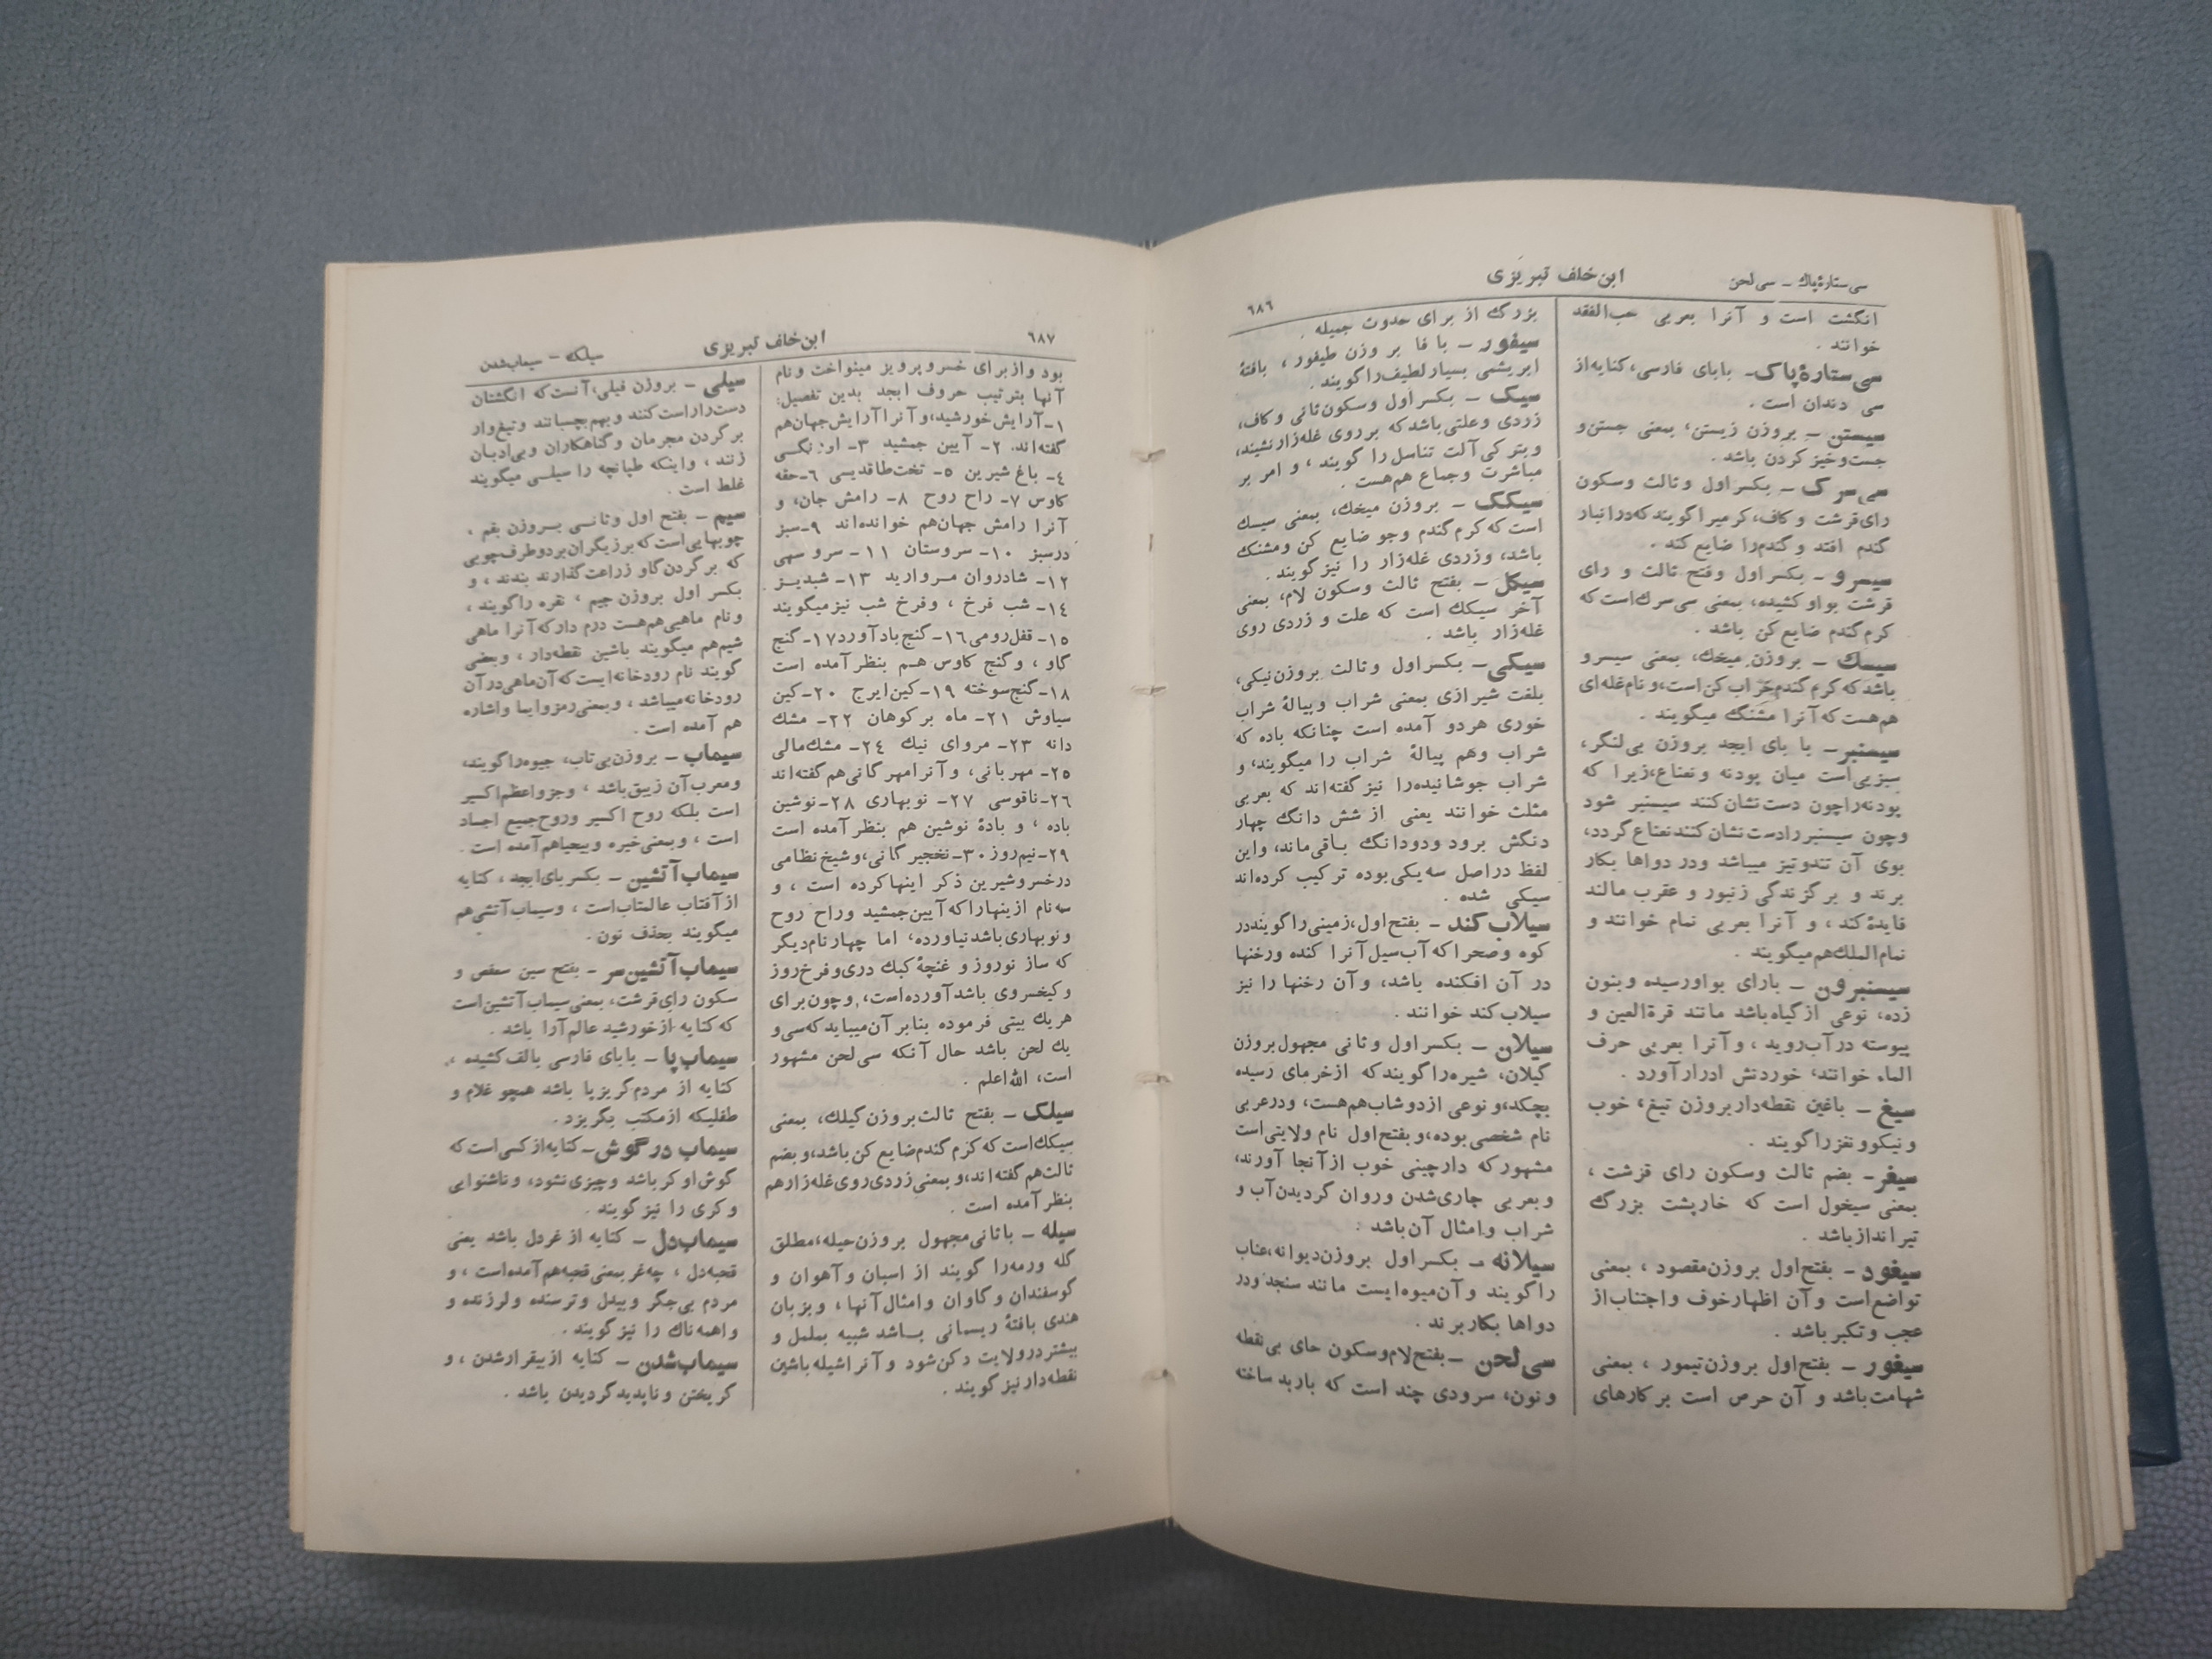 سی ستارهٔ پاك – سی لحن
ابن خلف تبریزی
٦٨٦
انگشت است و آنرا بعربی حب الفقد
خوانند .
سی ستارهٔ پاک– بابای فارسی، کنایه از
سی دندان است .
سیستن – بروزن زیستن، بمعنی جستن و
جست و خیز کردن باشد .
سی سرک – بکسر اول و ثالث وسکون
رای قرشت و کاف، کرمیرا گویند که در انبار
گندم افتد و گندم را ضایع کند .
سیسرو – بکسر اول وفتح ثالث و رای
قرشت بواو کشیده، بمعنی سی سرك است که
کرم گندم ضایع کن باشد .
سیسك – بروزن میخك، بمعنی سیسرو
باشد که کرم گندم خراب کن است، و نام غله ای
هم هست که آنرا مشنگ میگویند .
سیسنبر – با بای ابجد بروزن بی لنگر،
سبزیی است میان پودنه و نعناع، زیرا که
پودنه را چون دست نشان کنند سیسنبر شود
و چون سیسنبر را دست نشان کنند نعناع گردد،
بوی آن تند و تیز میباشد ودر دواها بکار
برند و بر گزندگی زنبور و عقرب مالند
فایده کند ، و آنرا بعربی نمام خوانند و
نمام الملك هم میگویند .
سیسنبرون – بارای بواو رسیده وبنون
زده، نوعی از گیاه باشد مانند قرة العین و
پیوسته در آب روید ، و آنرا بعربی حرف
الماء خوانند، خوردنش ادرار آورد .
سیغ – باغین نقطه دار بروزن تیغ، خوب
و نیکو و نغز را گویند .
سیغر– بضم ثالث وسکون رای قرشت ،
بمعنی سیخول است که خارپشت بزرگ
تیر انداز باشد .
سیغود – بفتح اول بروزن مقصود ، بمعنی
تواضع است و آن اظهار خوف و اجتناب از
عجب و تکبر باشد .
سیغور – بفتح اول بروزن تیمور ، بمعنی
شهامت باشد و آن حرص است بر کارهای
بزرگ از برای حدوث جمیله .
سیفور – با فا بر وزن طیفور ، بافتهٔ
ابریشمی بسیار لطیف را گویند .
سیک – بکسر اول وسکون ثانی و کاف،
زردی وعلتی باشد که بر روی غله زار نشیند،
وبتر کی آلت تناسل را گویند ، و امر بر
مباشرت وجماع هم هست .
سیکک – بروزن میخك، بمعنی سیسك
است که کرم گندم وجو ضایع کن ومشنك
باشد، وزردی غله زار را نیز گویند .
سیکل – بفتح ثالث وسکون لام، بمعنی
آخر سیکك است که علت و زردی روی
غله زار باشد .
سیکی – بکسر اول وثالث بروزن نیکی،
بلغت شیرازی بمعنی شراب وپیالهٔ شراب
خوری هر دو آمده است چنانکه باده که
شراب وهم پیالهٔ شراب را میگویند، و
شراب جوشانیده را نیز گفته اند که بعربی
مثلث خوانند یعنی از شش دانگ چهار
دنگش برود ودودانگ باقی ماند، واین
لفظ در اصل سه یکی بوده ترکیب کرده اند
سیکی شده .
سیلاب کند – بفتح اول، زمینی را گویند در
کوه وصحرا که آب سیل آنرا کنده ورخنها
در آن افکنده باشد، و آن رخنها را نیز
سیلاب کند خوانند .
سیلان – بکسر اول و ثانی مجهول بروزن
گیلان، شیره را گویند که از خرمای رسیده
بچکد، و نوعی از دوشاب هم هست، ودر عربی
نام شخصی بوده، و بفتح اول نام ولایتی است
مشهور که دارچینی خوب از آنجا آورند،
و بعربی جاری شدن وروان گردیدن آب و
شراب و امثال آن باشد .
سیلانه – بکسر اول بروزن دیوانه، عناب
را گویند و آن میوه ایست مانند سنجد و در
دواها بکار برند .
سی لحن – بفتح لام وسکون حای بی نقطه
و نون، سرودی چند است که باربد ساخته
٦٨٧
ابن خلف تبریزی
سیلکه – سیماب شدن
بود واز برای خسرو پرویز مینواخت ونام
آنها بترتیب حروف ابجد بدین تفصیل:
١– آرایش خورشید، و آنرا آرایش جهان هم
گفته اند. ٢– آیین جمشید ٣– اورنگی
٤– باغ شیرین ٥– تخت طاقدیسی ٦– حقه
کاوس ٧– راح روح ٨– رامش جان، و
آنرا رامش جهان هم خوانده اند ٩– سبز
درسبز ١٠– سروستان ١١– سرو سهی
١٢– شادروان مروارید ١٣– شبدیز
١٤– شب فرخ ، وفرخ شب نیز میگویند
١٥– قفل رومی ١٦– گنج باد آورد ١٧– گنج
گاو ، و گنج کاوس هم بنظر آمده است
١٨– گنج سوخته ١٩– کین ایرج ٢٠– کین
سیاوش ٢١– ماه بر کوهان ٢٢– مشك
دانه ٢٣– مروای نیك ٢٤– مشك مالی
٢٥– مهربانی، و آنرا مهرگانی هم گفته اند
٢٦– ناقوسی ٢٧– نوبهاری ٢٨– نوشین
باده ، و بادهٔ نوشین هم بنظر آمده است
٢٩– نیمروز ٣٠– نخجیر گانی، و شیخ نظامی
در خسرو شیرین ذکر اینها کرده است ، و
سه نام از ینها را که آیین جمشید وراح روح
و نوبهاری باشد نیاورده، اما چهار نام دیگر
که ساز نوروز و غنچهٔ کبك دری و فرخ روز
و کیخسروی باشد آورده است، و چون برای
هریك بیتی فرموده بنابر آن میباید که سی و
یك لحن باشد حال آنکه سی لحن مشهور
است، الله اعلم .
سیلک – بفتح ثالث بروزن گیلك، بمعنی
سیکك است که کرم گندم ضایع کن باشد، و بضم
ثالث هم گفته اند، و بمعنی زردی روی غله زار هم
بنظر آمده است .
سیله – باثانی مجهول بروزن حیله، مطلق
گله ورمه را گویند از اسبان و آهوان و
گوسفندان و گاوان و امثال آنها ، و بزبان
هندی بافتهٔ ریسمانی باشد شبیه بململ و
بیشتر در ولایت دکن شود و آنرا شیله باشین
نقطه دار نیز گویند .
سیلی – بروزن فیلی، آنست که انگشتان
دست را راست کنند و بهم بچسبانند و تیغ وار
بر گردن مجرمان و گناهکاران و بی ادبان
زنند ، واینکه طپانچه را سیلی میگویند
غلط است .
سیم – بفتح اول وثانی بروزن بقم ،
چوبهایی است که برزیگران بر دو طرف چوبی
که بر گردن گاو زراعت گذارند بندند ، و
بکسر اول بروزن جیم ، نقره را گویند ،
و نام ماهیی هم هست درم دار که آنرا ماهی
شیم هم میگویند باشین نقطه دار ، و بعضی
گویند نام رودخانه ایست که آن ماهی در آن
رودخانه میباشد ، و بمعنی رمز و ایما و اشاره
هم آمده است .
سیماب – بروزن بی تاب، جیوه را گویند،
ومعرب آن زیبق باشد ، وجزو اعظم اکسیر
است بلکه روح اکسیر وروح جمیع اجساد
است ، و بمعنی خیره و بیحیا هم آمده است .
سیماب آتشین – بکسر بای ابجد ، کنایه
از آفتاب عالمتاب است ، وسیماب آتشی هم
میگویند بحذف نون.
سیماب آتشین سر – بفتح سین سعفص و
سکون رای قرشت، بمعنی سیماب آتشین است
که کنایه از خورشید عالم آرا باشد .
سیماب پا – بابای فارسی بالف کشیده ،
کنایه از مردم گریز پا باشد همچو غلام و
طفلیکه از مکتب بگریزد .
سیماب در گوش – کنایه از کسی است که
گوش او کر باشد و چیزی نشود، و ناشنوایی
و کری را نیز گویند .
سیماب دل – کنایه از غردل باشد یعنی
قحبه دل ، چه غر بمعنی قحبه هم آمده است ، و
مردم بی جگر وبیدل وترسنده ولرزنده و
واهمه ناك را نیز گویند .
سیماب شدن – کنایه از بیقرار شدن ، و
گریختن و ناپدید گردیدن باشد .